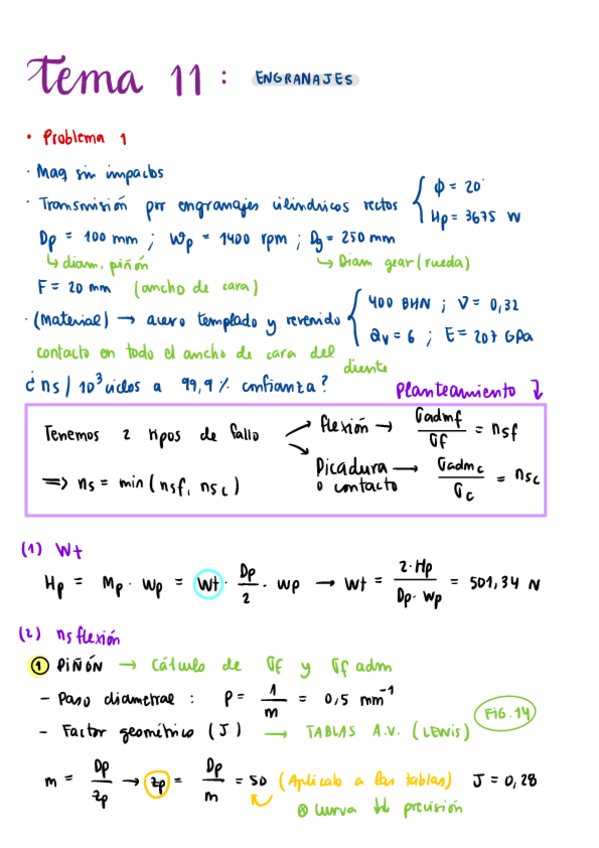 Tema 11 : ENGRANAJES
• Problema 1
· Maq sin impactos
· Transmisión por engranajes cilíndricos rectos { ϕ = 20°
Hp = 3675 W
Dp = 100 mm ; Wp = 1400 rpm ; Dg = 250 mm
↳ diam, piñón ↳ Diam gear (rueda)
F = 20 mm (ancho de cara)
· (Material) → acero templado y revenido { 400 BHN ; V = 0,32
Qv = 6 ; E = 207 GPa
contacto en todo el ancho de cara del diente
¿ns / 10³ ciclos a 99,9 % confianza?
Planteamiento ↴
Tenemos 2 tipos de fallo
→ flexión → σadmf / σf = nsf
→ Picadura o contacto → σadmc / σc = nsc
⇒ ns = min (nsf, nsc)
(1) Wt
Hp = Mp · wp = Wt · Dp / 2 · wp → Wt = 2·Hp / Dp·wp = 501,34 N
(2) ns flexión
① PIÑÓN → Cálculo de σf y σf adm
- Paso diametral : P = 1 / m = 0,5 mm⁻¹
- Factor geométrico (J) → TABLAS A.V. (LEWIS) FIG. 14
m = Dp / zp → zp = Dp / m = 50 (Aplícalo a las tablas) J = 0,28
⊗ curva de precisión